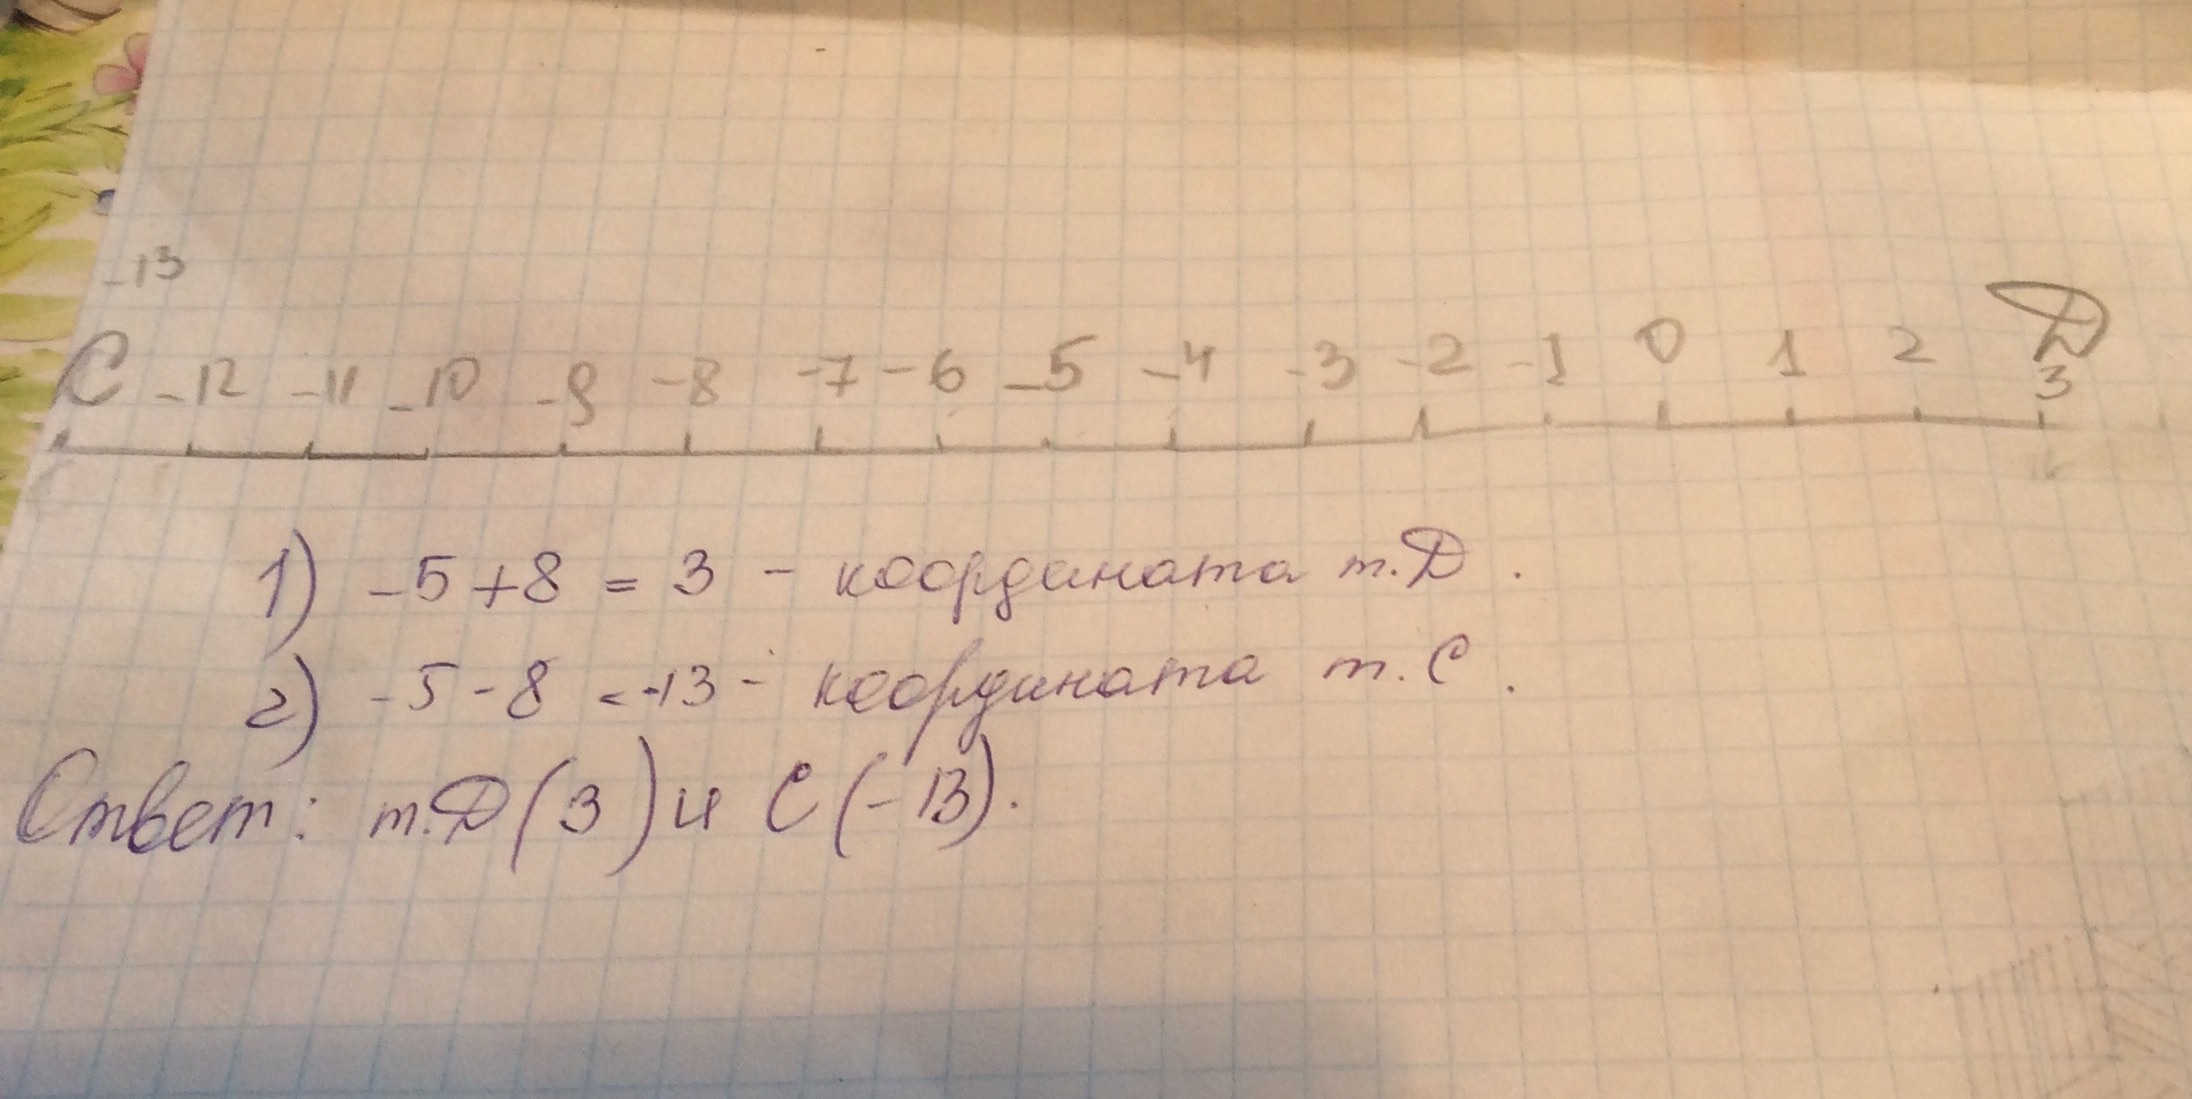 -13
С -12 -11 -10 -9 -8 -7 -6 -5 -4 -3 -2 -1 0 1 2 Д
3
1) -5+8 = 3 - координата т.Д.
2) -5-8 = -13 - координата т.С.
Ответ: т.Д(3) и С(-13).